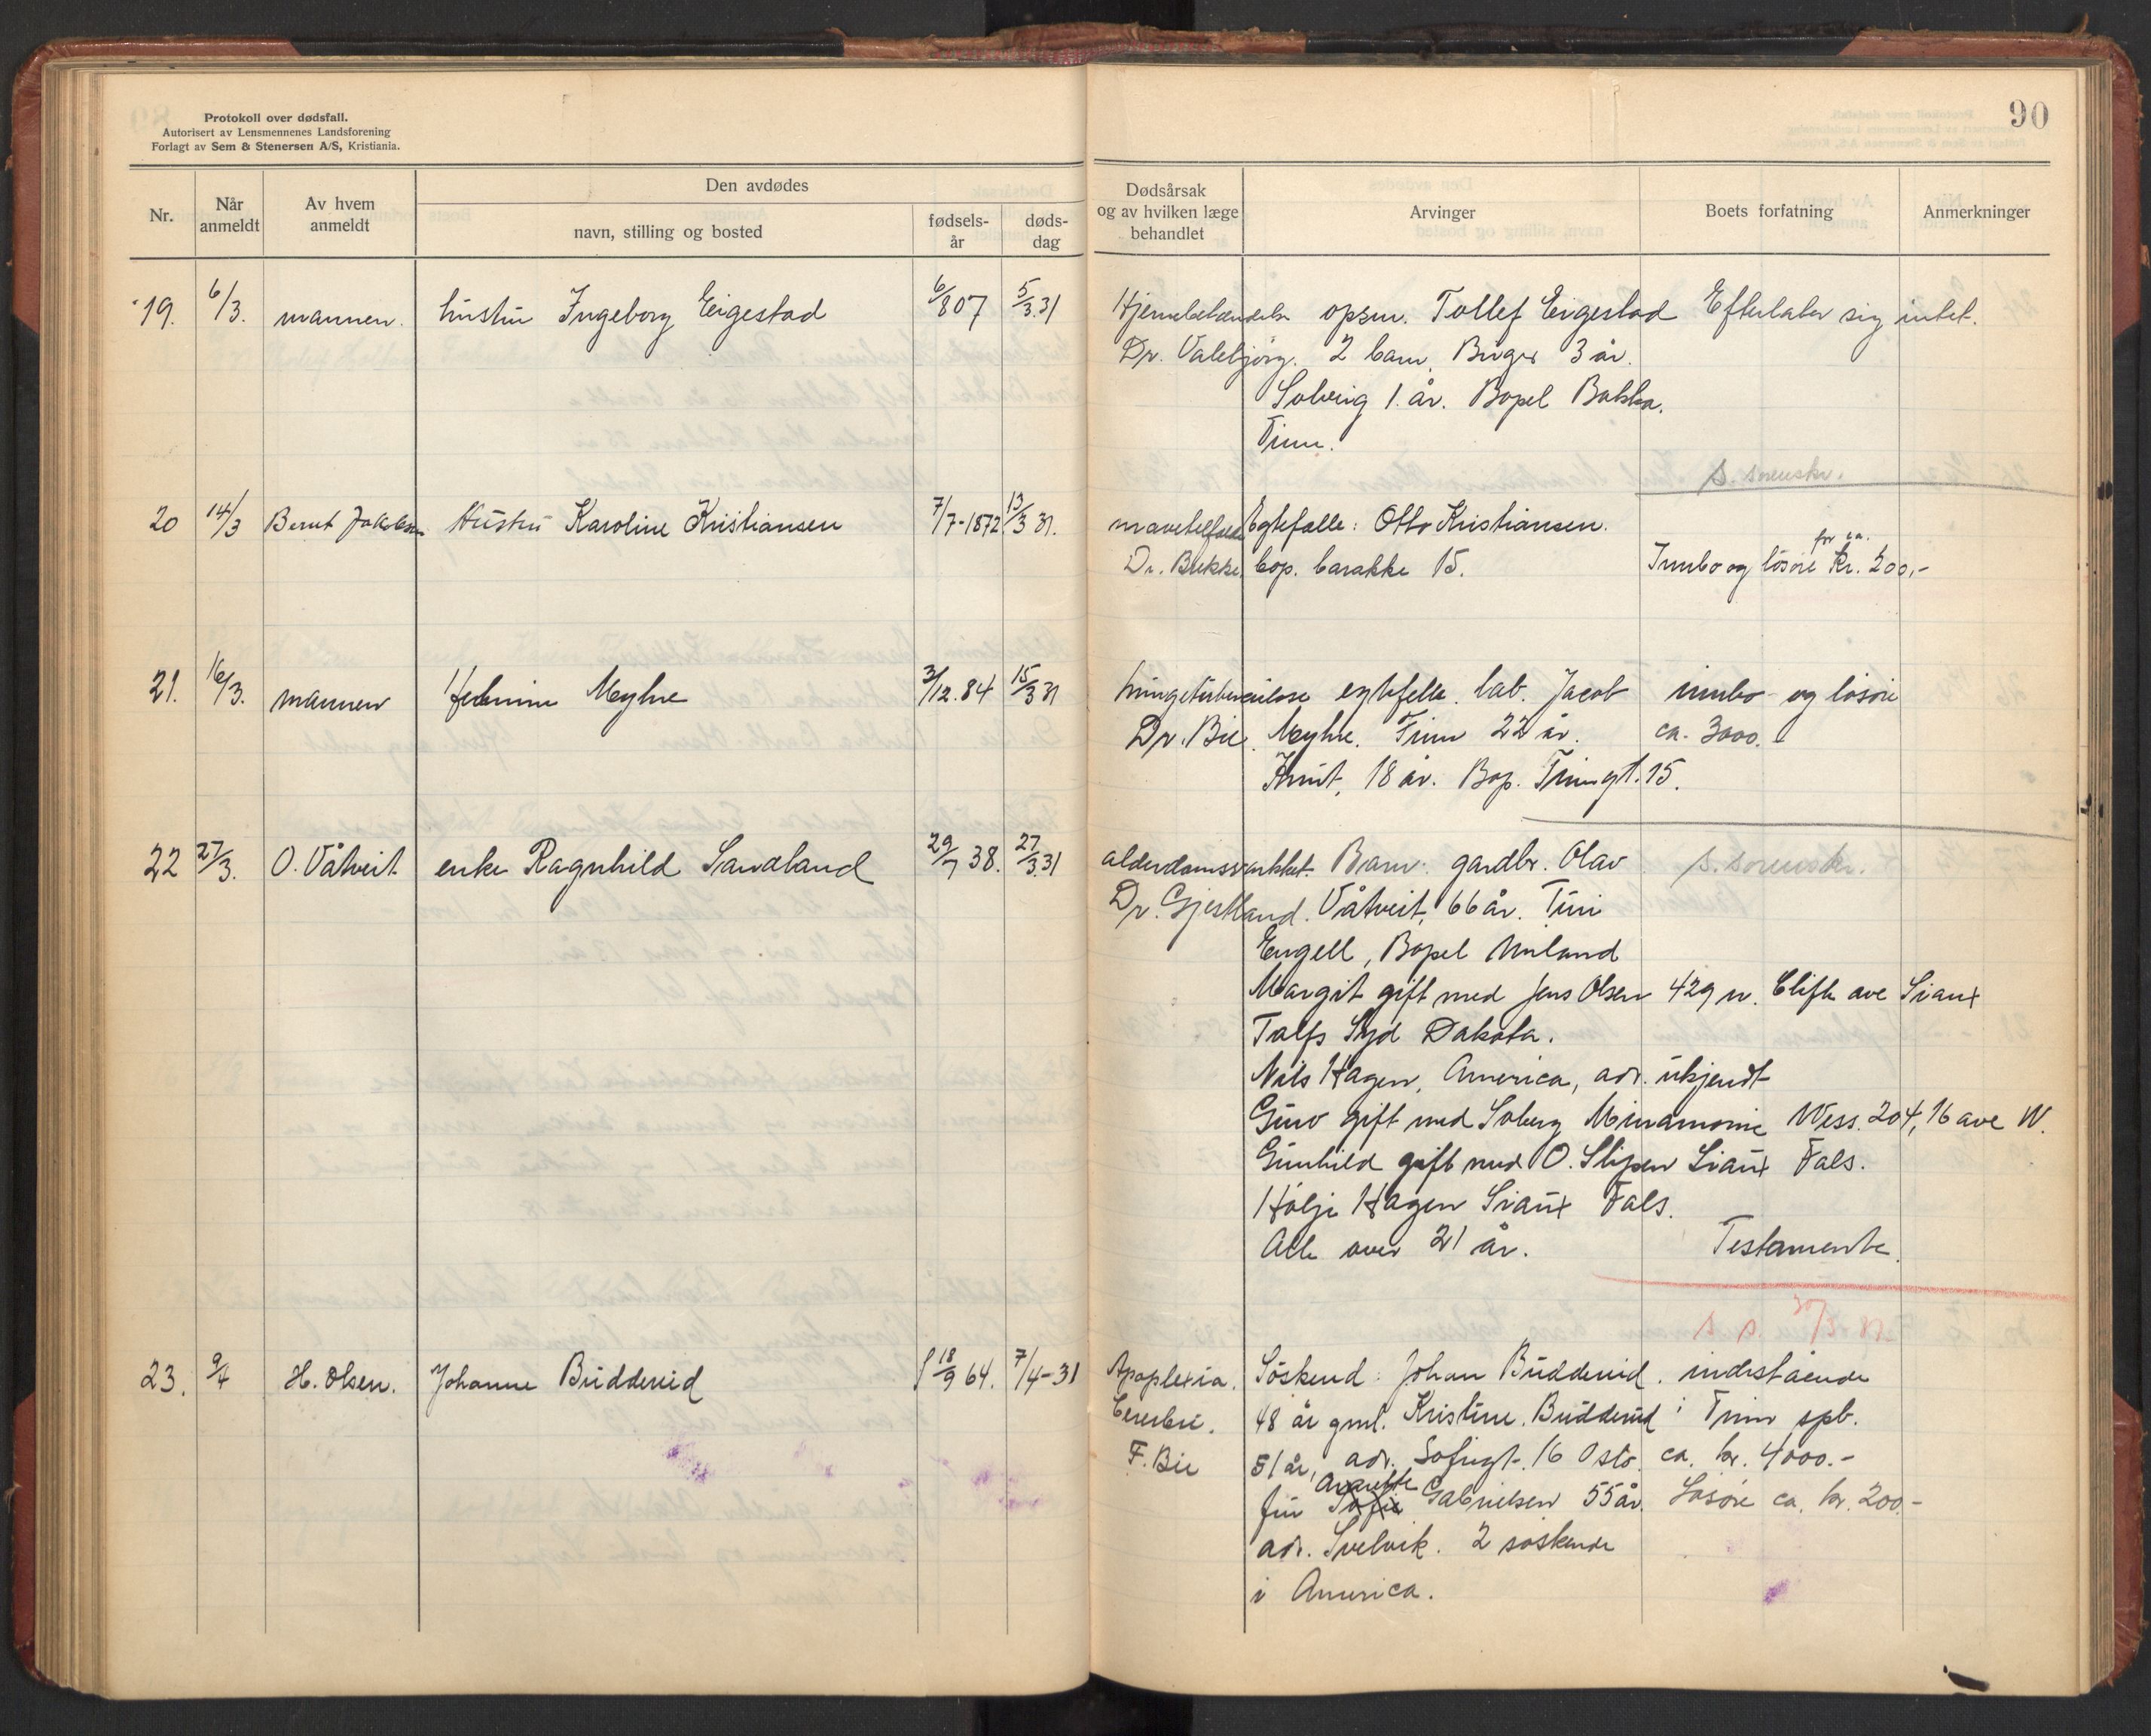 Protokoll over dødsfall.
Autorisert av Lensmennenes Landsforening
Forlagt av Sem & Stenersen A/S, Kristiania.
90
Nr.
Når anmeldt
Av hvem anmeldt
Den avdødes
navn, stilling og bosted
fødsels-år
døds-dag
Dødsårsak og av hvilken læge behandlet
Arvinger
Boets forfatning
Anmerkninger
19. 6/3. mannen. hustru Ingeborg Eigestad 6/8 07 5/3.31 Hjernebetændelse opsm. Tollef Eigestad Efterlater sig intet.
Dr. Valebjörg. 2 barn, Birger 3 år.
Solveig 1. år. Bopel Bakka.
Tinn.
S. sorenskr.
20 14/3 Bernt Jakobsen Hustru Karoline Kristiansen 7/7-1872 13/3 31. Egtefelle: Otto Kristiansen.
Dr. Bekke, bop. barakke 15. Innbo og lösöre for ca. kr. 200,-
21. 16/3. mannen Helmine Myhre 3/12.84 15/3 31 lungetuberculose egtefelle. lab. Jacob innbo og lösöre
Dr. Bie. Myhre. Finn 22 år. ca. 3000.-
Knut, 18 år. Bop. Tinngt. 15.
22 27/3. O. Våtveit enke Ragnhild Sandland 29/7 38. 27/3.31 alderdomssvakhet. Barn: gardbr. Olav S. sorenskr.
Dr. Gjestland. Våtveit, 66 år. Turi
Engell, Bopel Miland
Margit gift med Jens Olsen 429 n. Clifte ave Siaux
Talfs Syd Dakota.
Nils Hagen, America, adr. ukjendt
Guro gift med Soberg Minamonie Wess. 204, 16 ave W.
Gunhild gift med O. Slipen Siaux Fals.
Hölje Hagen Siaux Fals.
Alle over 21 år. Testamente.
S. s. 30/3-31
23. 9/4 H. Olsen. Johanne Budderud f 18/9 64. 7/4-31 Apoplexia. Söskend: Johan Budderud. indestående
Cerebri. 48 år gml. Kristine Budderud i Tinn spb.
F. Bie 51 år, adr. Sofiegt. 16 Oslo. ca. kr. 4000.-
fru Sofie Gabrielsen 55 år. Lösöre ca. kr. 200.-
adr. Svelvik. 2 söskende
i America.